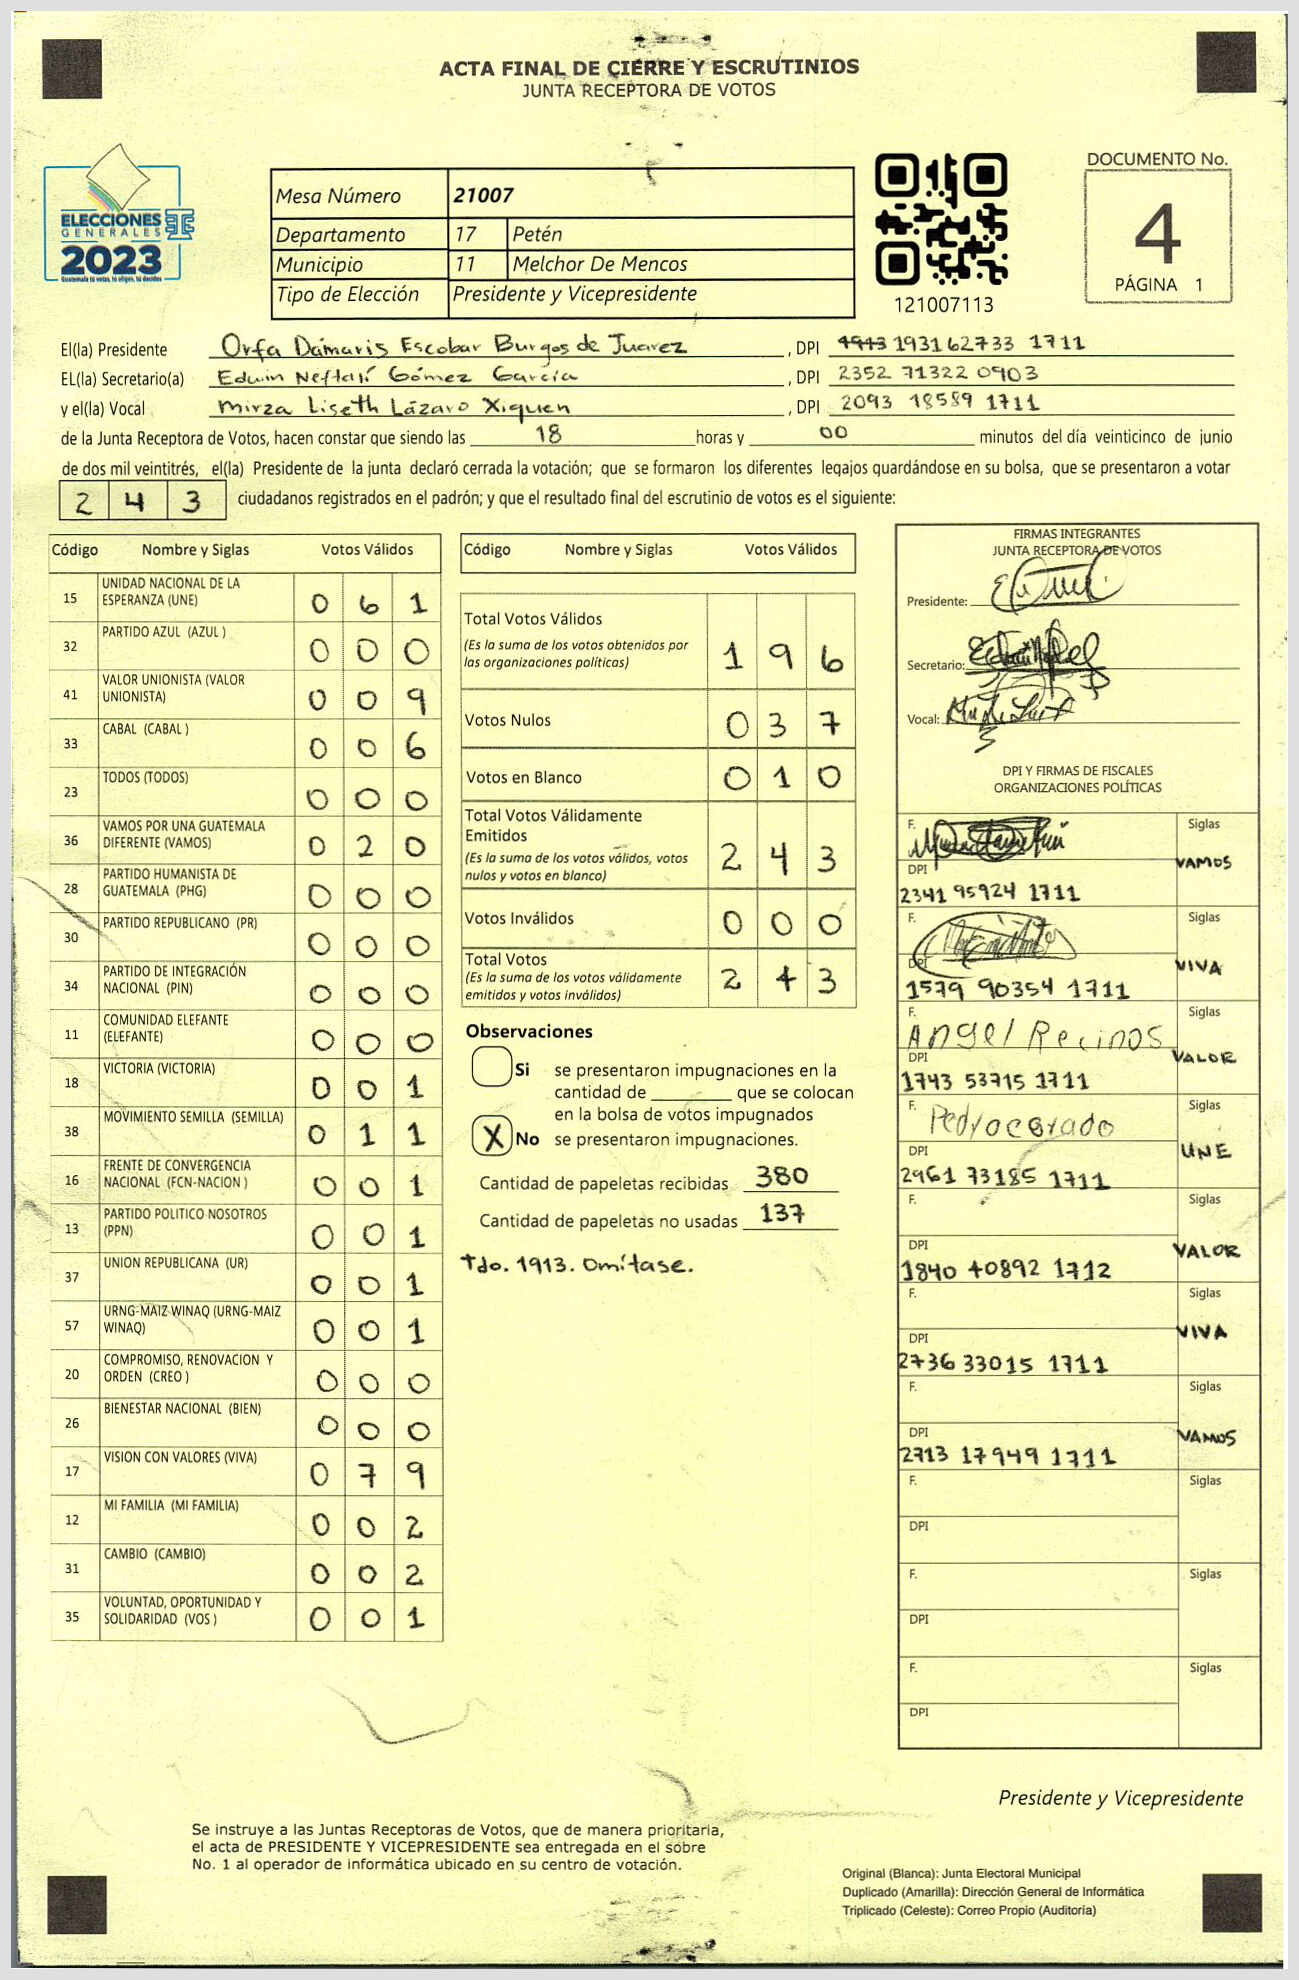 ACTA FINAL DE CIERRE Y ESCRUTINIOS
JUNTA RECEPTORA DE VOTOS
ELECCIONES
GENERALES
2023
Guatemala tú votas, tú eliges, tú decides
Mesa Número 21007
Departamento 17 Petén
Municipio 11 Melchor De Mencos
Tipo de Elección Presidente y Vicepresidente
121007113
DOCUMENTO No.
4
PÁGINA 1
El(la) Presidente Orfa Dámaris Escobar Burgos de Juarez, DPI 1913 1931 62733 1711
EL(la) Secretario(a) Edwin Neftalí Gómez García, DPI 2352 71322 0903
y el(la) Vocal Mirza Liseth Lázaro Xiquen, DPI 2093 18589 1711
de la Junta Receptora de Votos, hacen constar que siendo las 18 horas y 00 minutos del día veinticinco de junio
de dos mil veintitrés, el(la) Presidente de la junta declaró cerrada la votación; que se formaron los diferentes legajos guardándose en su bolsa, que se presentaron a votar
2 4 3 ciudadanos registrados en el padrón; y que el resultado final del escrutinio de votos es el siguiente:
Código Nombre y Siglas Votos Válidos
15 UNIDAD NACIONAL DE LA ESPERANZA (UNE) 0 6 1
32 PARTIDO AZUL (AZUL ) 0 0 0
41 VALOR UNIONISTA (VALOR UNIONISTA) 0 0 9
33 CABAL (CABAL ) 0 0 6
23 TODOS (TODOS) 0 0 0
36 VAMOS POR UNA GUATEMALA DIFERENTE (VAMOS) 0 2 0
28 PARTIDO HUMANISTA DE GUATEMALA (PHG) 0 0 0
30 PARTIDO REPUBLICANO (PR) 0 0 0
34 PARTIDO DE INTEGRACIÓN NACIONAL (PIN) 0 0 0
11 COMUNIDAD ELEFANTE (ELEFANTE) 0 0 0
18 VICTORIA (VICTORIA) 0 0 1
38 MOVIMIENTO SEMILLA (SEMILLA) 0 1 1
16 FRENTE DE CONVERGENCIA NACIONAL (FCN-NACION ) 0 0 1
13 PARTIDO POLITICO NOSOTROS (PPN) 0 0 1
37 UNION REPUBLICANA (UR) 0 0 1
57 URNG-MAIZ WINAQ (URNG-MAIZ WINAQ) 0 0 1
20 COMPROMISO, RENOVACION Y ORDEN (CREO ) 0 0 0
26 BIENESTAR NACIONAL (BIEN) 0 0 0
17 VISION CON VALORES (VIVA) 0 7 9
12 MI FAMILIA (MI FAMILIA) 0 0 2
31 CAMBIO (CAMBIO) 0 0 2
35 VOLUNTAD, OPORTUNIDAD Y SOLIDARIDAD (VOS ) 0 0 1
Código Nombre y Siglas Votos Válidos
Total Votos Válidos
(Es la suma de los votos obtenidos por
las organizaciones políticas) 1 9 6
Votos Nulos 0 3 7
Votos en Blanco 0 1 0
Total Votos Válidamente
Emitidos
(Es la suma de los votos válidos, votos
nulos y votos en blanco) 2 4 3
Votos Inválidos 0 0 0
Total Votos
(Es la suma de los votos válidamente
emitidos y votos inválidos) 2 4 3
Observaciones
Si se presentaron impugnaciones en la
cantidad de ________ que se colocan
en la bolsa de votos impugnados
X No se presentaron impugnaciones.
Cantidad de papeletas recibidas 380
Cantidad de papeletas no usadas 137
Tdo. 1913. Omítase.
FIRMAS INTEGRANTES
JUNTA RECEPTORA DE VOTOS
Presidente:
Secretario:
Vocal:
DPI Y FIRMAS DE FISCALES
ORGANIZACIONES POLÍTICAS
F. Siglas
VAMOS
DPI
2341 95924 1711
F. Siglas
VIVA
DPI
1579 90354 1711
F. Siglas
Angel Recinos
DPI VALOR
1743 53715 1711
F. Siglas
DPI UNE
2961 73185 1711
F. Siglas
DPI VALOR
1840 40892 1712
F. Siglas
VIVA
DPI
2736 33015 1711
F. Siglas
DPI VAMOS
2713 17949 1711
F. Siglas
DPI
F. Siglas
DPI
F. Siglas
DPI
Presidente y Vicepresidente
Se instruye a las Juntas Receptoras de Votos, que de manera prioritaria,
el acta de PRESIDENTE Y VICEPRESIDENTE sea entregada en el sobre
No. 1 al operador de informática ubicado en su centro de votación.
Original (Blanca): Junta Electoral Municipal
Duplicado (Amarilla): Dirección General de Informática
Triplicado (Celeste): Correo Propio (Auditoría)